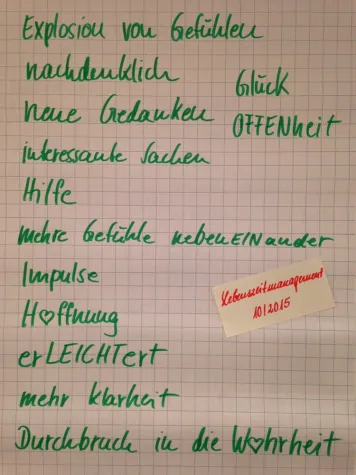 Explosion von Gefühlen
nachdenklich
Glück
neue Gedanken
OFFENheit
interessante Sachen
Hilfe
mehre Gefühle nebenEINander
Impulse
Lebenszeitmanagement
10/2015
H♡ffnung
erLEICHTert
mehr Klarheit
Durchbruch in die W♡hrheit